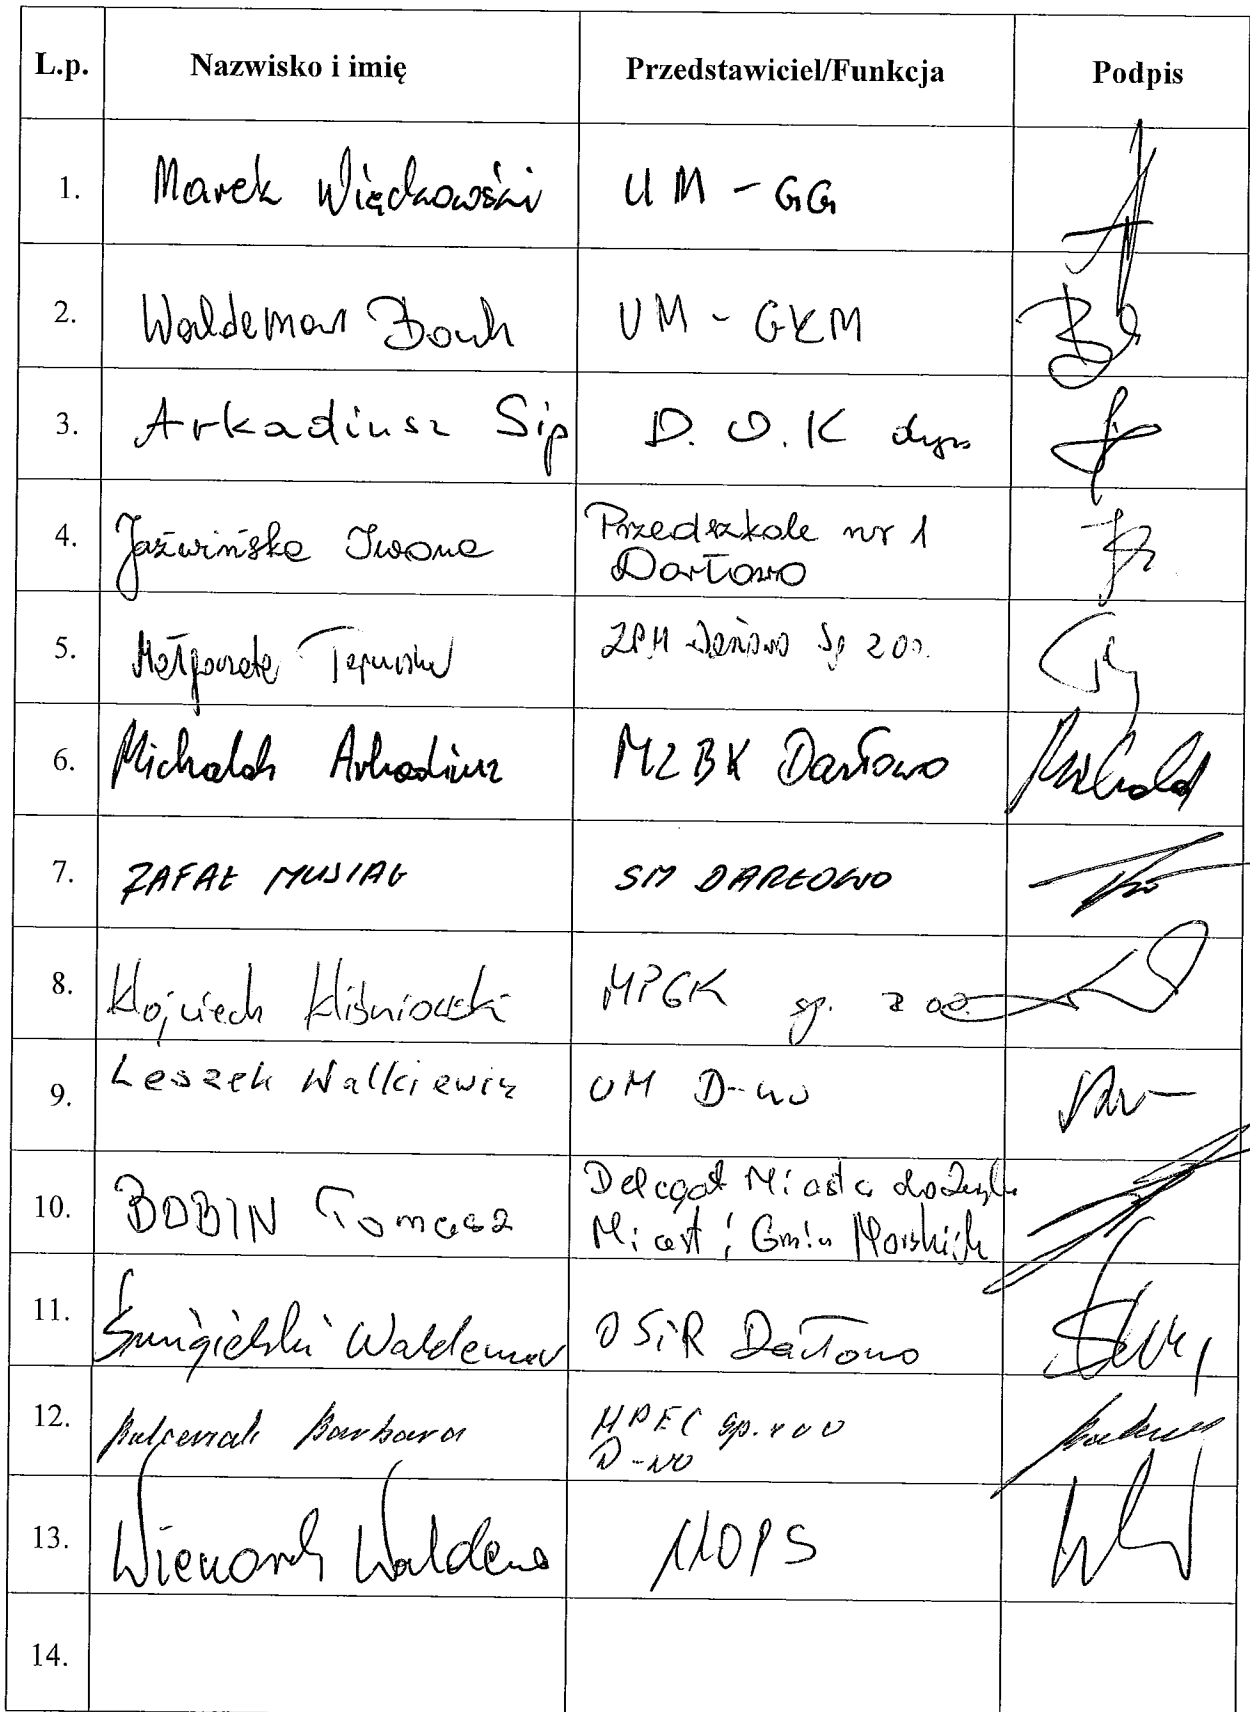 L.p. Nazwisko i imię Przedstawiciel/Funkcja Podpis
1. Marek Więckowski UM - GG
2. Waldemar UM - GKM
3. Arkadiusz Sip D. O. K dyr.
4. Jaźwińska Iwona Przedszkole nr 1
Darłowo
5. Małgorzata Darłowo Sp z oo.
6. Michalak Arkadiusz MZBK Darłowo
7. RAFAŁ MUSIAŁ SM DARŁOWO
8. Wojciech Wiśniowski MPGK sp. z oo.
9. Leszek Walkiewicz UM D-wo
10. BOBIN Tomasz Delegat Miasta do
Miast i Gmin Morskich
11. Śmigielski Waldemar OSiR Darłowo
12. Barbara MPEC Sp. z o o
D-wo
13. MOPS
14.